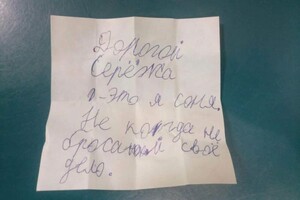 Дорогой
Серёжа
это я соня.
Не когда не
бросай своё
дело.